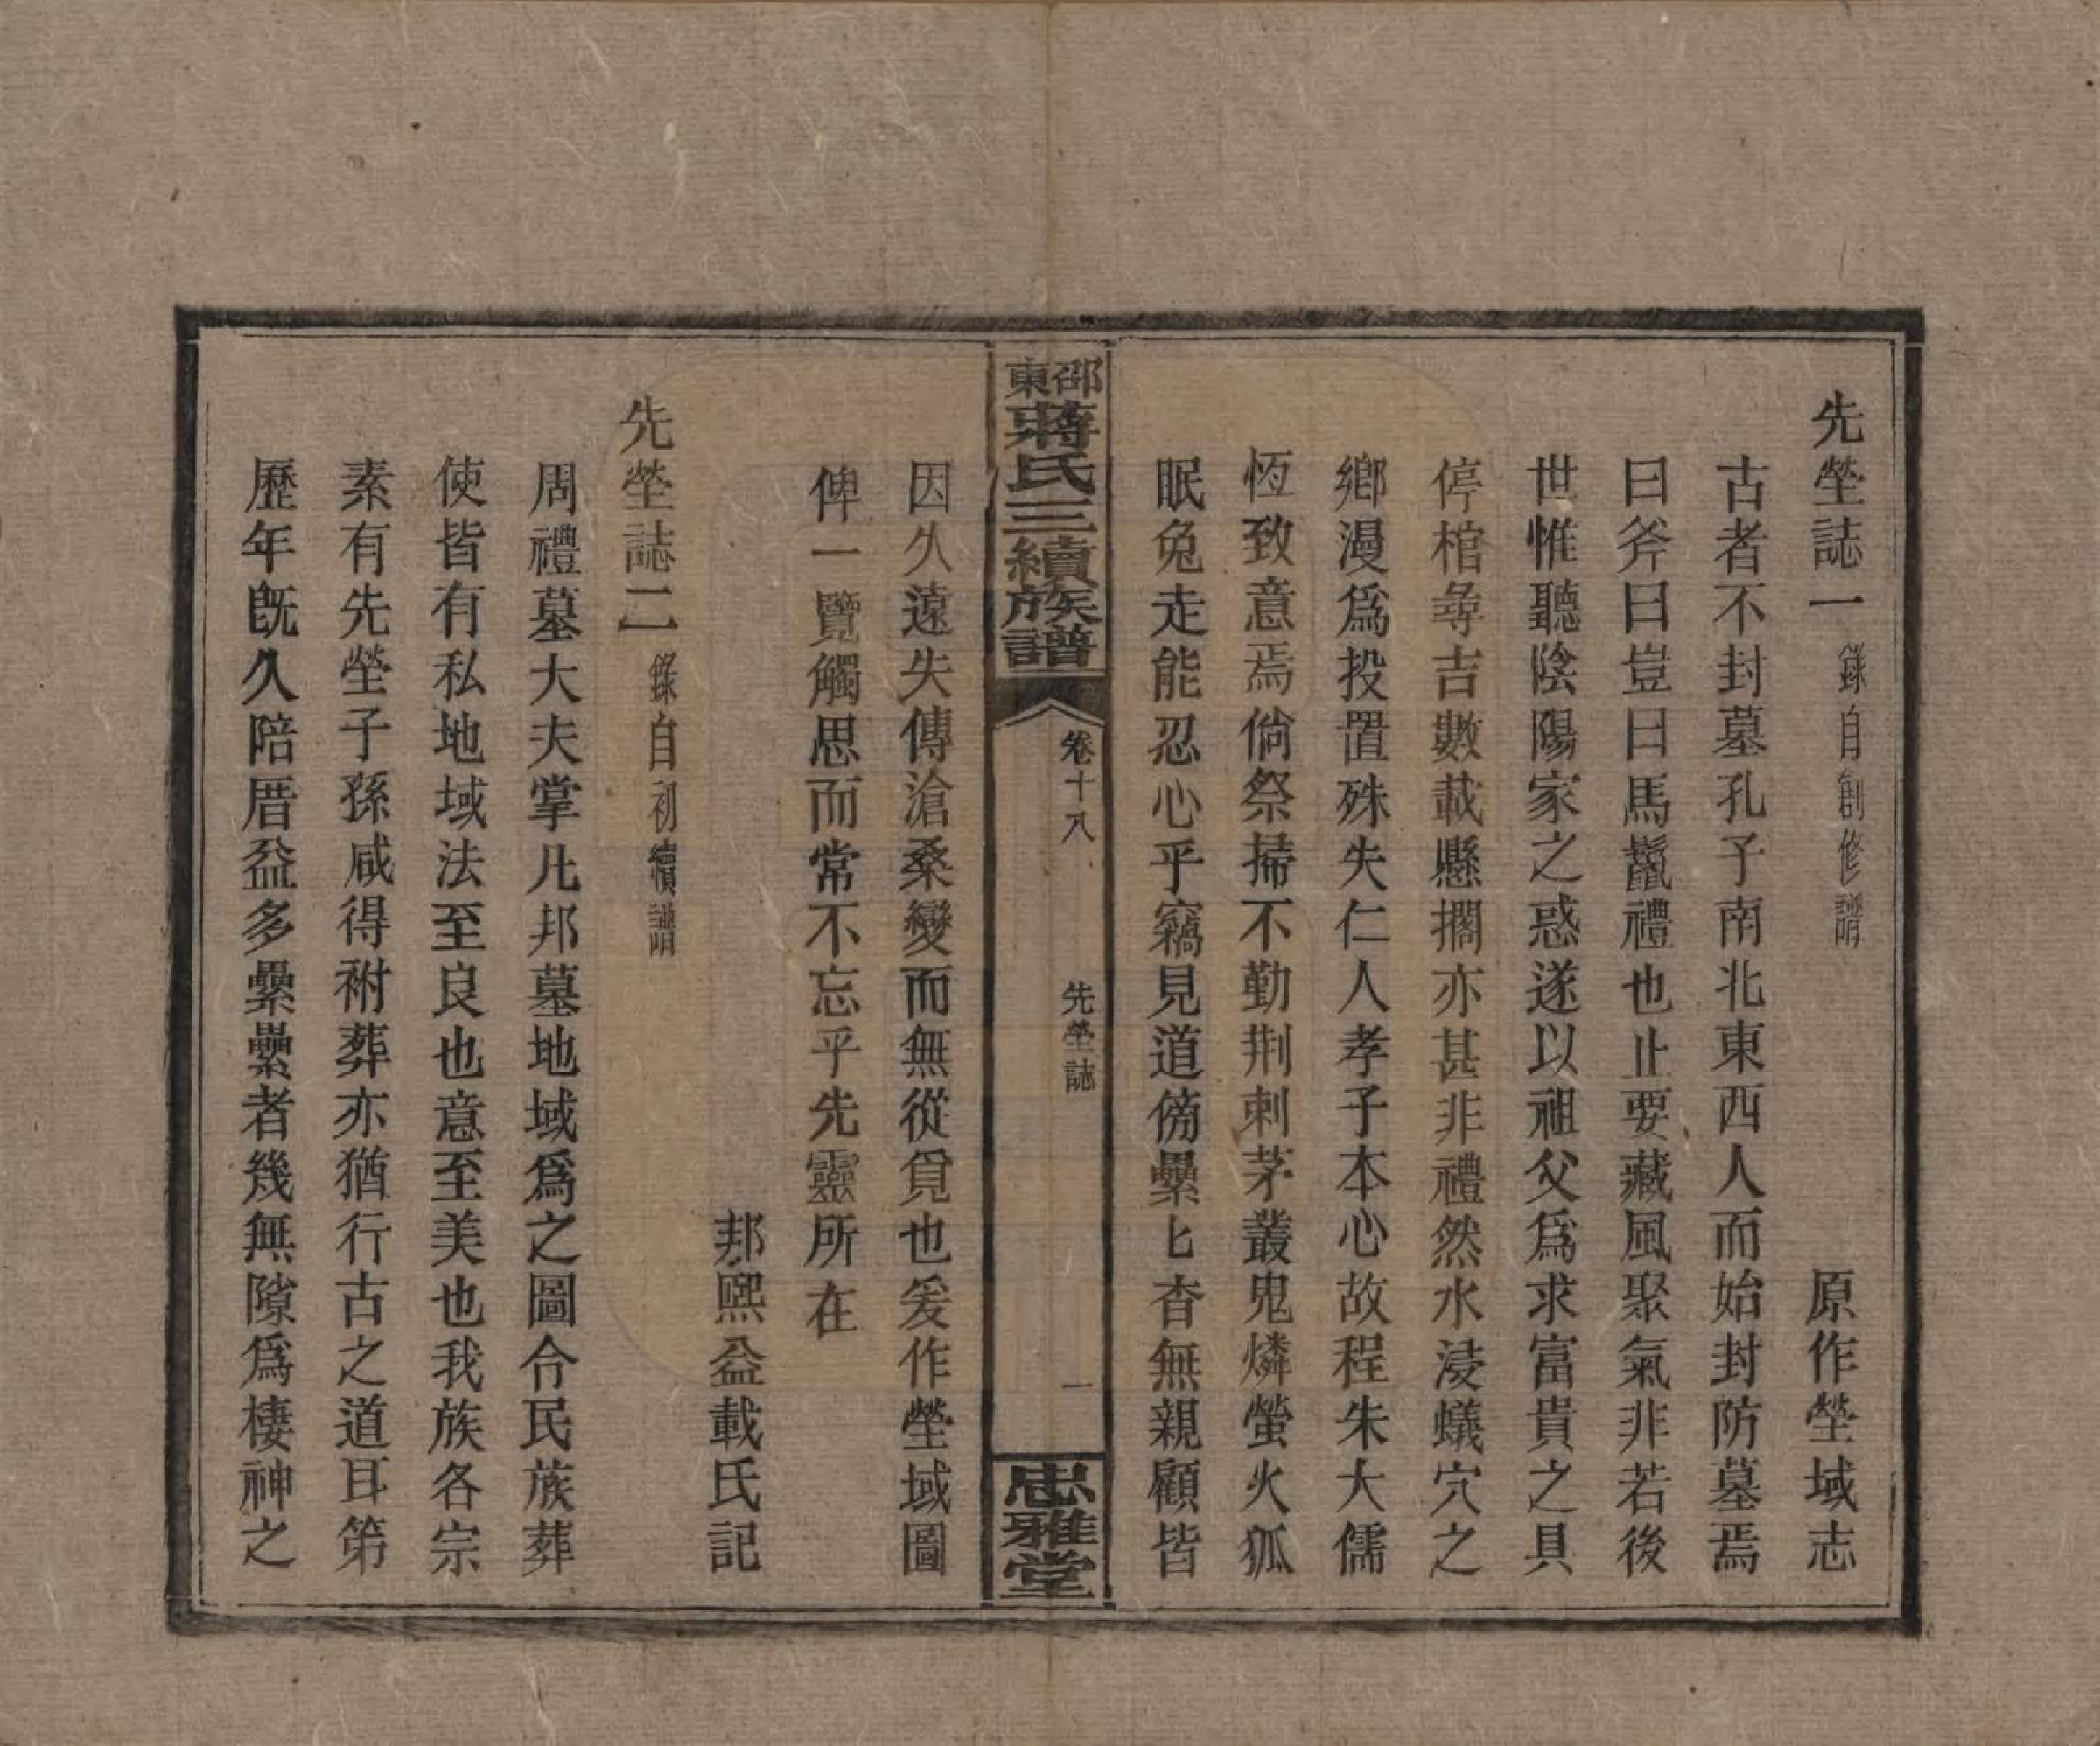 先塋誌一 錄自創修譜 原作塋域志
古者不封墓孔子南北東西人而始封防墓焉
曰斧曰豈曰馬鬣禮也止要藏風聚氣非若後
世惟聽陰陽家之惑遂以祖父爲求富貴之具
停棺尋吉數載懸擱亦甚非禮然水浸蟻穴之
鄉漫爲投置殊失仁人孝子本心故程朱大儒
恆致意焉倘祭掃不勤荆刺茅叢鬼燐螢火狐
眠兔走能忍心乎竊見道傍纍匕杳無親顧皆
邵東蔣氏三續族譜 卷十八 先塋誌 一 忠雅堂
因久遠失傳滄桑變而無從覓也爰作塋域圖
俾一覽觸思而常不忘乎先靈所在
邦熙益載氏記
先塋誌二 錄自初續譜
周禮墓大夫掌凡邦墓地域爲之圖令民族葬
使皆有私地域法至良也意至美也我族各宗
素有先塋子孫咸得祔葬亦猶行古之道耳第
歷年旣久陪厝益多纍纍者幾無隙爲棲神之